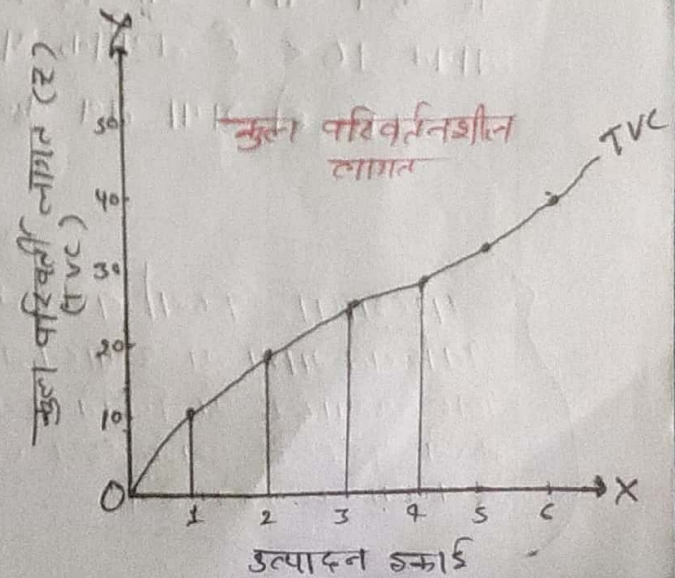 Y
कुल परिवर्ती लागत (₹)
(TVC)
50
40
30
20
10
0
कुल परिवर्तनशील
लागत
TVC
X
1 2 3 4 5 6
उत्पादन इकाई